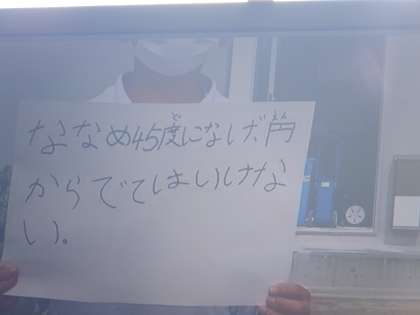 ななめ45度になげ、円
からでてはいけな
い。